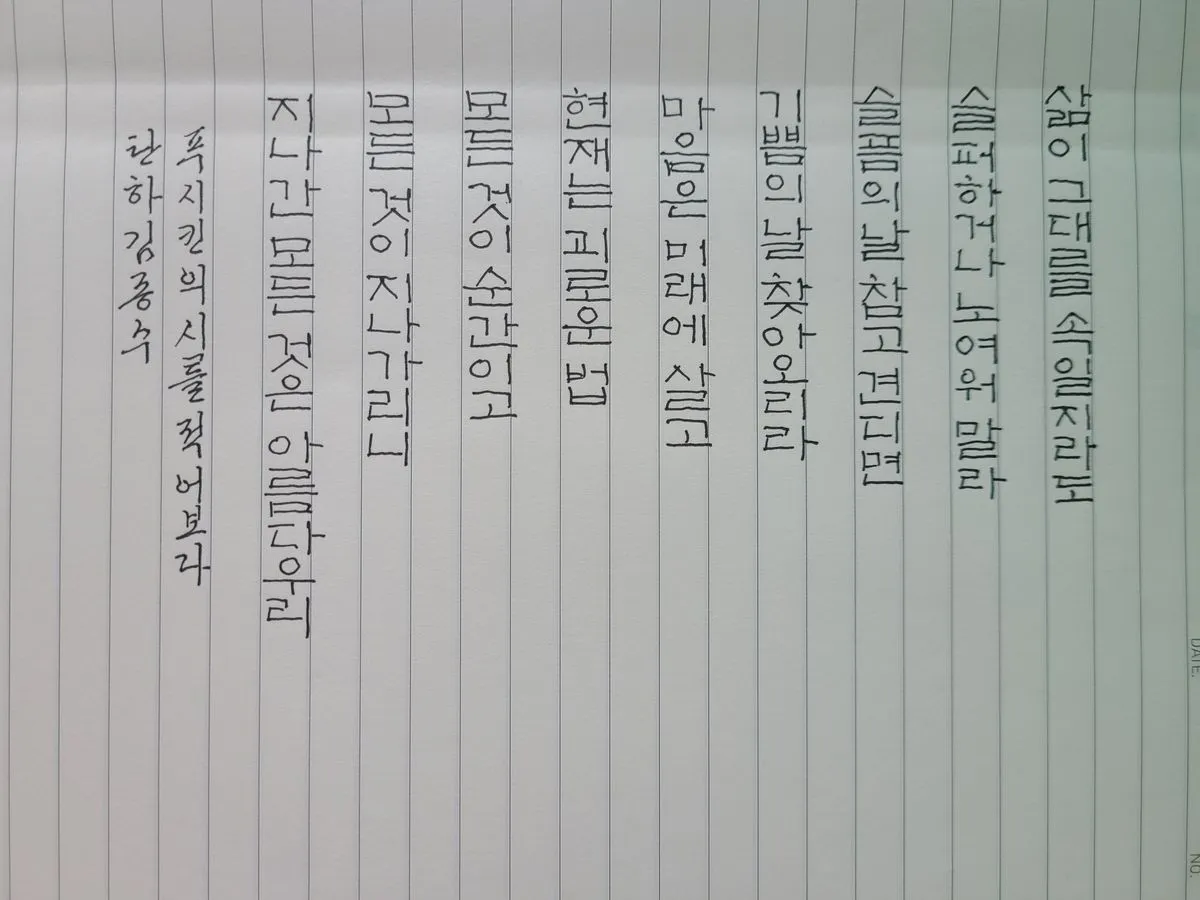 삶이 그대를 속일지라도
슬퍼하거나 노여워 말라
슬픔의 날 참고 견디면
기쁨의 날 찾아오리라
마음은 미래에 살고
현재는 괴로운 법
모든 것이 순간이고
모든 것이 지나가리니
지나간 모든 것은 아름다우리
푸시킨의 시를 적어보다
탄하 김종수
DATE.
NO.